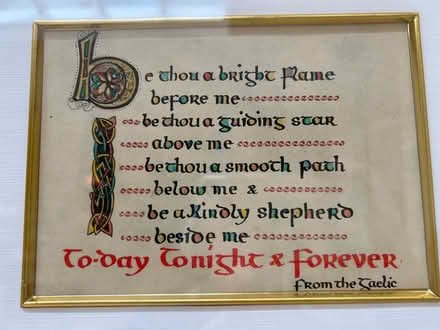 be thou a bright flame
before me
be thou a guiding star
above me
be thou a smooth path
below me &
be a kindly shepherd
beside me
To-day Tonight & Forever
From the Gaelic